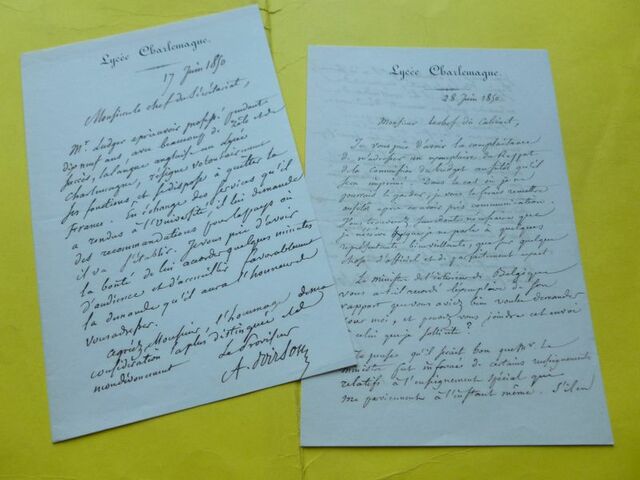 Lycée Charlemagne.
17 Juin 1850
Monsieur le chef du Secrétariat,
Mr. Ludger après avoir professé pendant
dix neuf ans, avec beaucoup de zèle et de
succès, la langue anglaise au Lycée
Charlemagne, résigne volontairement
ses fonctions et se dispose à quitter la
France. En échange des services qu'il
a rendus à l'Université, il lui demande
des recommandations pour le pays où
il va s'établir. Je vous prie d'avoir
la bonté de lui accorder quelques minutes
d'audience et d'accueillir favorablement
la demande qu'il aura l'honneur de
vous adresser.
Agréez, Monsieur, l'hommage de ma
considération la plus distinguée et de
mon dévouement
Le Proviseur
A. Poirson
Lycée Charlemagne.
28 Juin 1850.
Monsieur le chef du Cabinet,
Je vous prie d'avoir la complaisance
de m'adresser un exemplaire du Rapport
de la commission du budget aussitôt qu'il
sera imprimé. Dans le cas où je ne
pourrais le garder, je vous le ferais remettre
aussitôt après en avoir pris communication.
que
je n'ai ici que je ne parle à quelques
représentants bienveillants, que sur quelque
chose d'officiel et de parfaitement exact.
Le Ministre de l'intérieur de Belgique
vous a-t-il accordé l'exemplaire de son
rapport que vous aviez bien voulu demander
pour moi, et pouvez vous joindre cet envoi
à celui que je sollicite?
Je pense qu'il serait bon que Mr le
Ministre fut informé de certains renseignements
relatifs à l'enseignement spécial que
me parviennent à l'instant même. S'il en